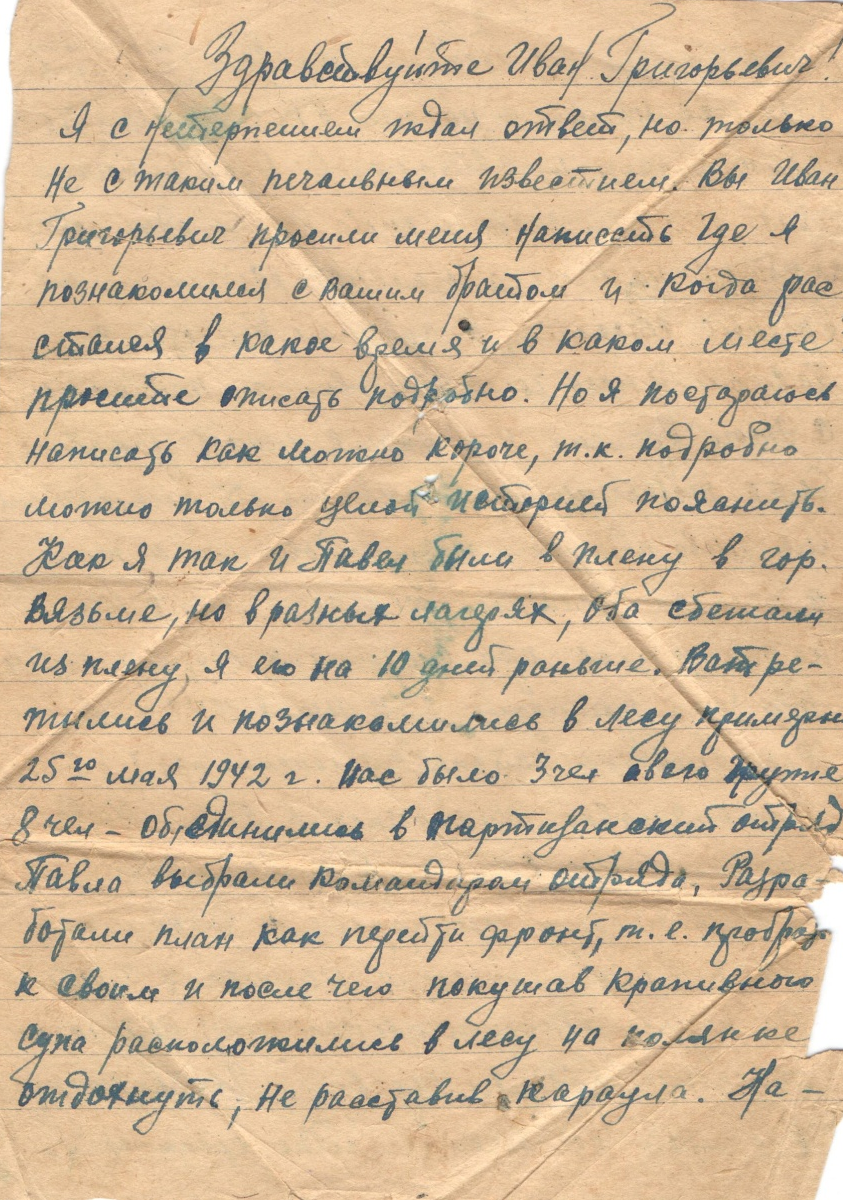 Здравствуйте Иван Григорьевич!
Я с нетерпением ждал ответ, но только
не с таким печальным известием. Вы Иван
Григорьевич просили меня написать где я
познакомился с вашим братом и когда рас
стался в какое время и в каком месте
просите описать подробно. Но я постараюсь
написать как можно короче, т.к. подробно
можно только целой историей пояснить.
Как я так и Павел были в плену в гор.
Вязьме, но в разных лагерях, оба сбежали
из плену я его на 10 дней раньше.
тились и познакомились в лесу примерно
25го мая 1942 г. нас было 3 чел
8 чел – Объединились в партизанский отряд
Павла выбрали командиром отряда, Разра-
ботали план как перейти фронт, т.е.
к своим и после чего покушав крапивного
супа расположились в лесу на полянке
отдохнуть, не расставив караула. На-